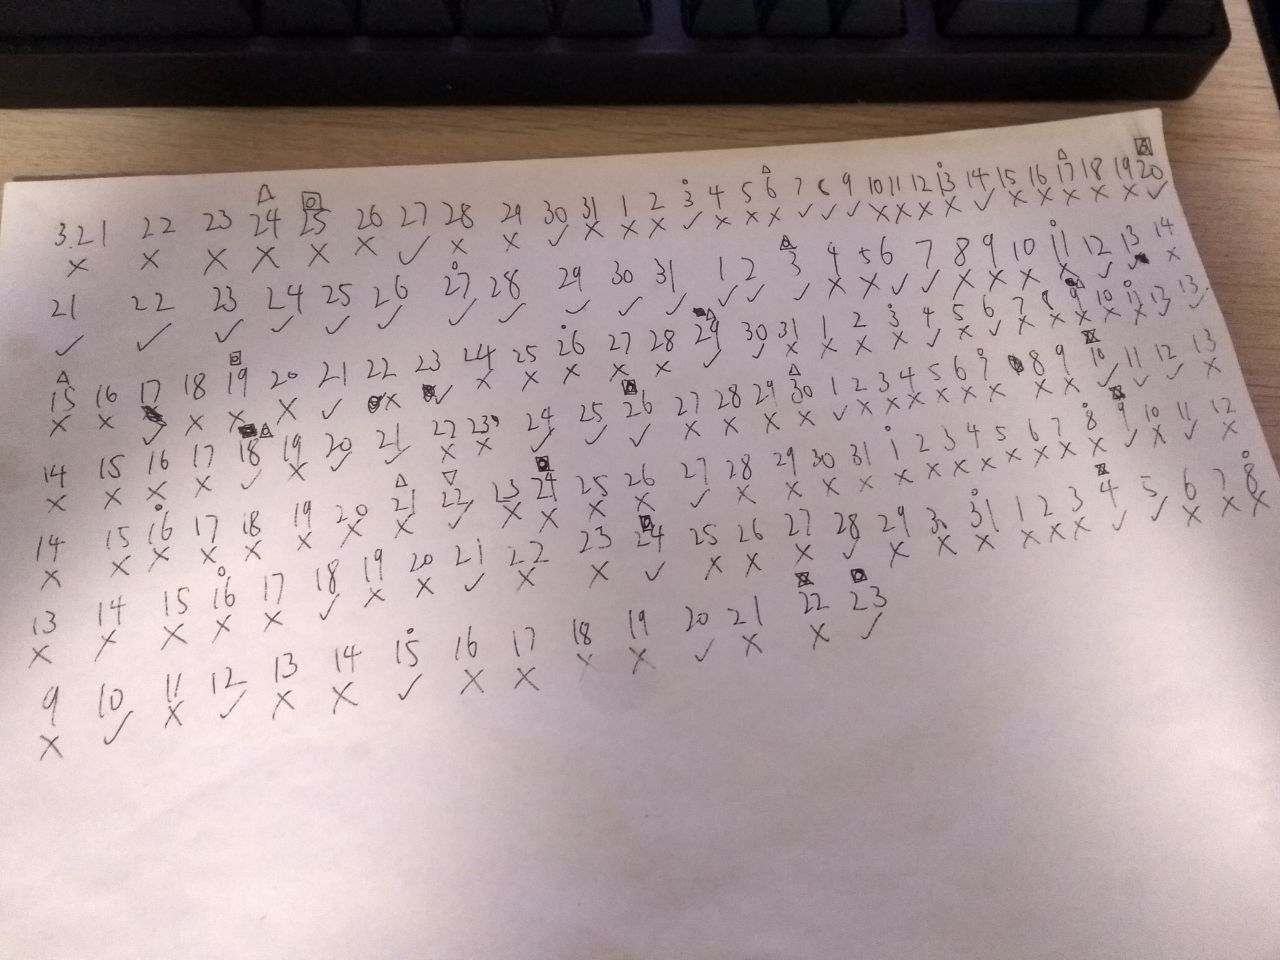 3.21 22 23 24 25 26 27 28 29 30 31 1 2 3 4 5 6 7 8 9 10 11 12 13 14 15 16 17 18 19 20
× × × × × × ✓ × × ✓ × × × ✓ × × × ✓ ✓ ✓ × × × × ✓ × × × × × ✓
21 22 23 24 25 26 27 28 29 30 31 1 2 3 4 5 6 7 8 9 10 11 12 13 14
✓ ✓ ✓ ✓ ✓ ✓ ✓ ✓ ✓ ✓ ✓ ✓ ✓ ✓ × × ✓ ✓ × × × × ✓ ✓ ×
15 16 17 18 19 20 21 22 23 24 25 26 27 28 29 30 31 1 2 3 4 5 6 7 8 9 10 11 13 13
× × ✓ × × × ✓ × ✓ × × × × × ✓ ✓ × × × × ✓ × ✓ × × × × × ✓ ✓
14 15 16 17 18 19 20 21 22 23 24 25 26 27 28 29 30 1 2 3 4 5 6 7 8 9 10 11 12 13
× × × × ✓ × ✓ ✓ × × ✓ ✓ ✓ × × × × ✓ × × × × × × × × ✓ ✓ ✓ ×
14 15 16 17 18 19 20 21 22 23 24 25 26 27 28 29 30 31 1 2 3 4 5 6 7 8 9 10 11 12
× × × × × × × × ✓ × × × × ✓ × × × × × × × × × × × × ✓ × ✓ ×
13 14 15 16 17 18 19 20 21 22 23 24 25 26 27 28 29 30 31 1 2 3 4 5 6 7 8
× × × × × ✓ × × ✓ × × ✓ × × × ✓ × × × × × × ✓ ✓ × × ×
9 10 11 12 13 14 15 16 17 18 19 20 21 22 23
× ✓ × ✓ × × ✓ × × × × ✓ × × ✓